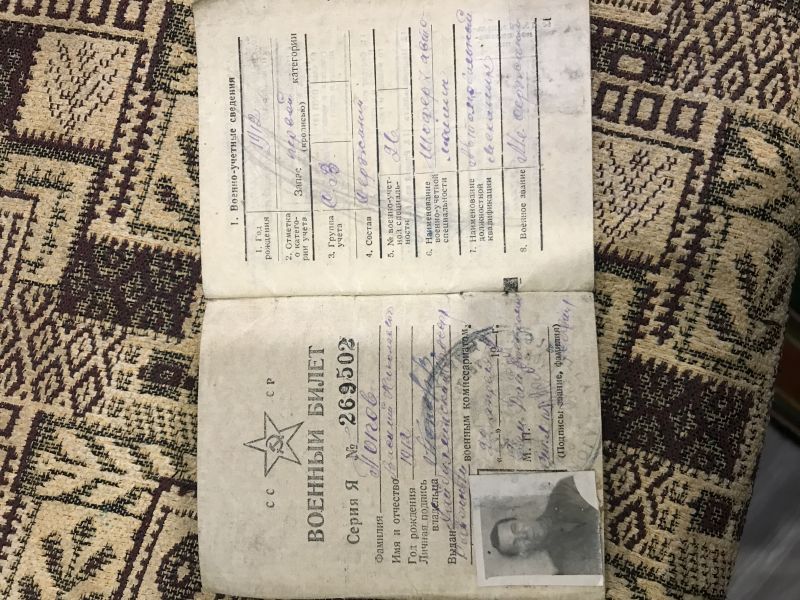 СС СР
ВОЕННЫЙ БИЛЕТ
Серия Я № 269502
Фамилия Попов
Имя и отчество
Год рождения 1912
Личная подпись
владельца
Выдан
военным комиссариатом
М. П.
(Подпись, звание, фамилия)
I. Военно-учетные сведения
1. Год
рождения 1912
2. Отметка
о катего-
рии учета
Запас первой категории
(прописью)
3. Группа
учета
4. Состав Сержантский
5. № военно-учет-
ной специаль-
ности 26
6. Наименование
военно-учетной
специальности Шофер авто-
машин
7. Наименование
должностной
квалификации
механик
8. Военное звание Мл. сержант